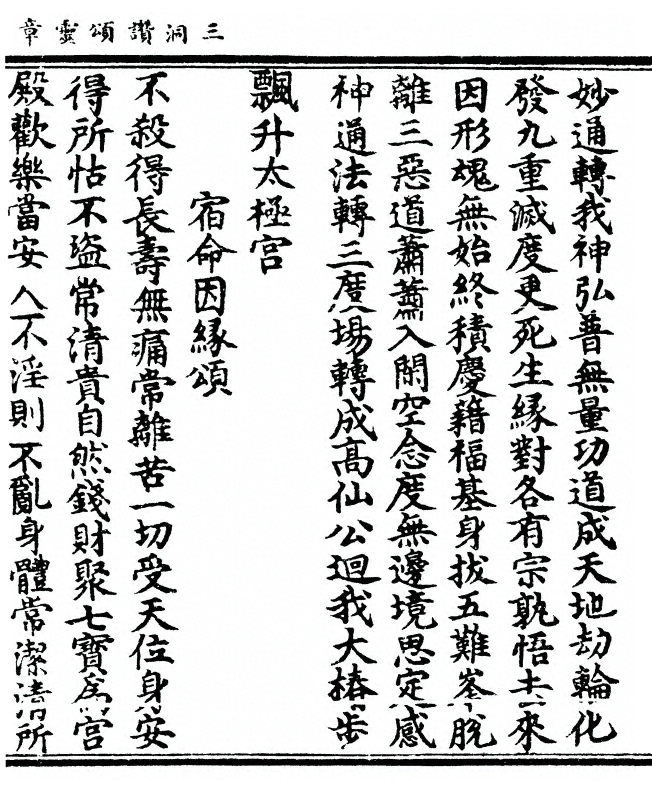 三洞讚頌靈章
妙通轉我神弘普無量功道成天地劫輪化
發九重滅度更死生緣對各有宗孰悟去來
因形魂無始終積慶藉福基身拔五難峯脫
離三惡道蕭蕭入閑空念度無邊境思定感
神通法轉三度場轉成高仙公迴我大椿步
飄升太極宮
宿命因緣頌
不殺得長壽無痛常離苦一切受天位身安
得所怙不盜常清貴自然錢財聚七寶為宮
殿歡樂當安人不淫則不亂身體常潔清所